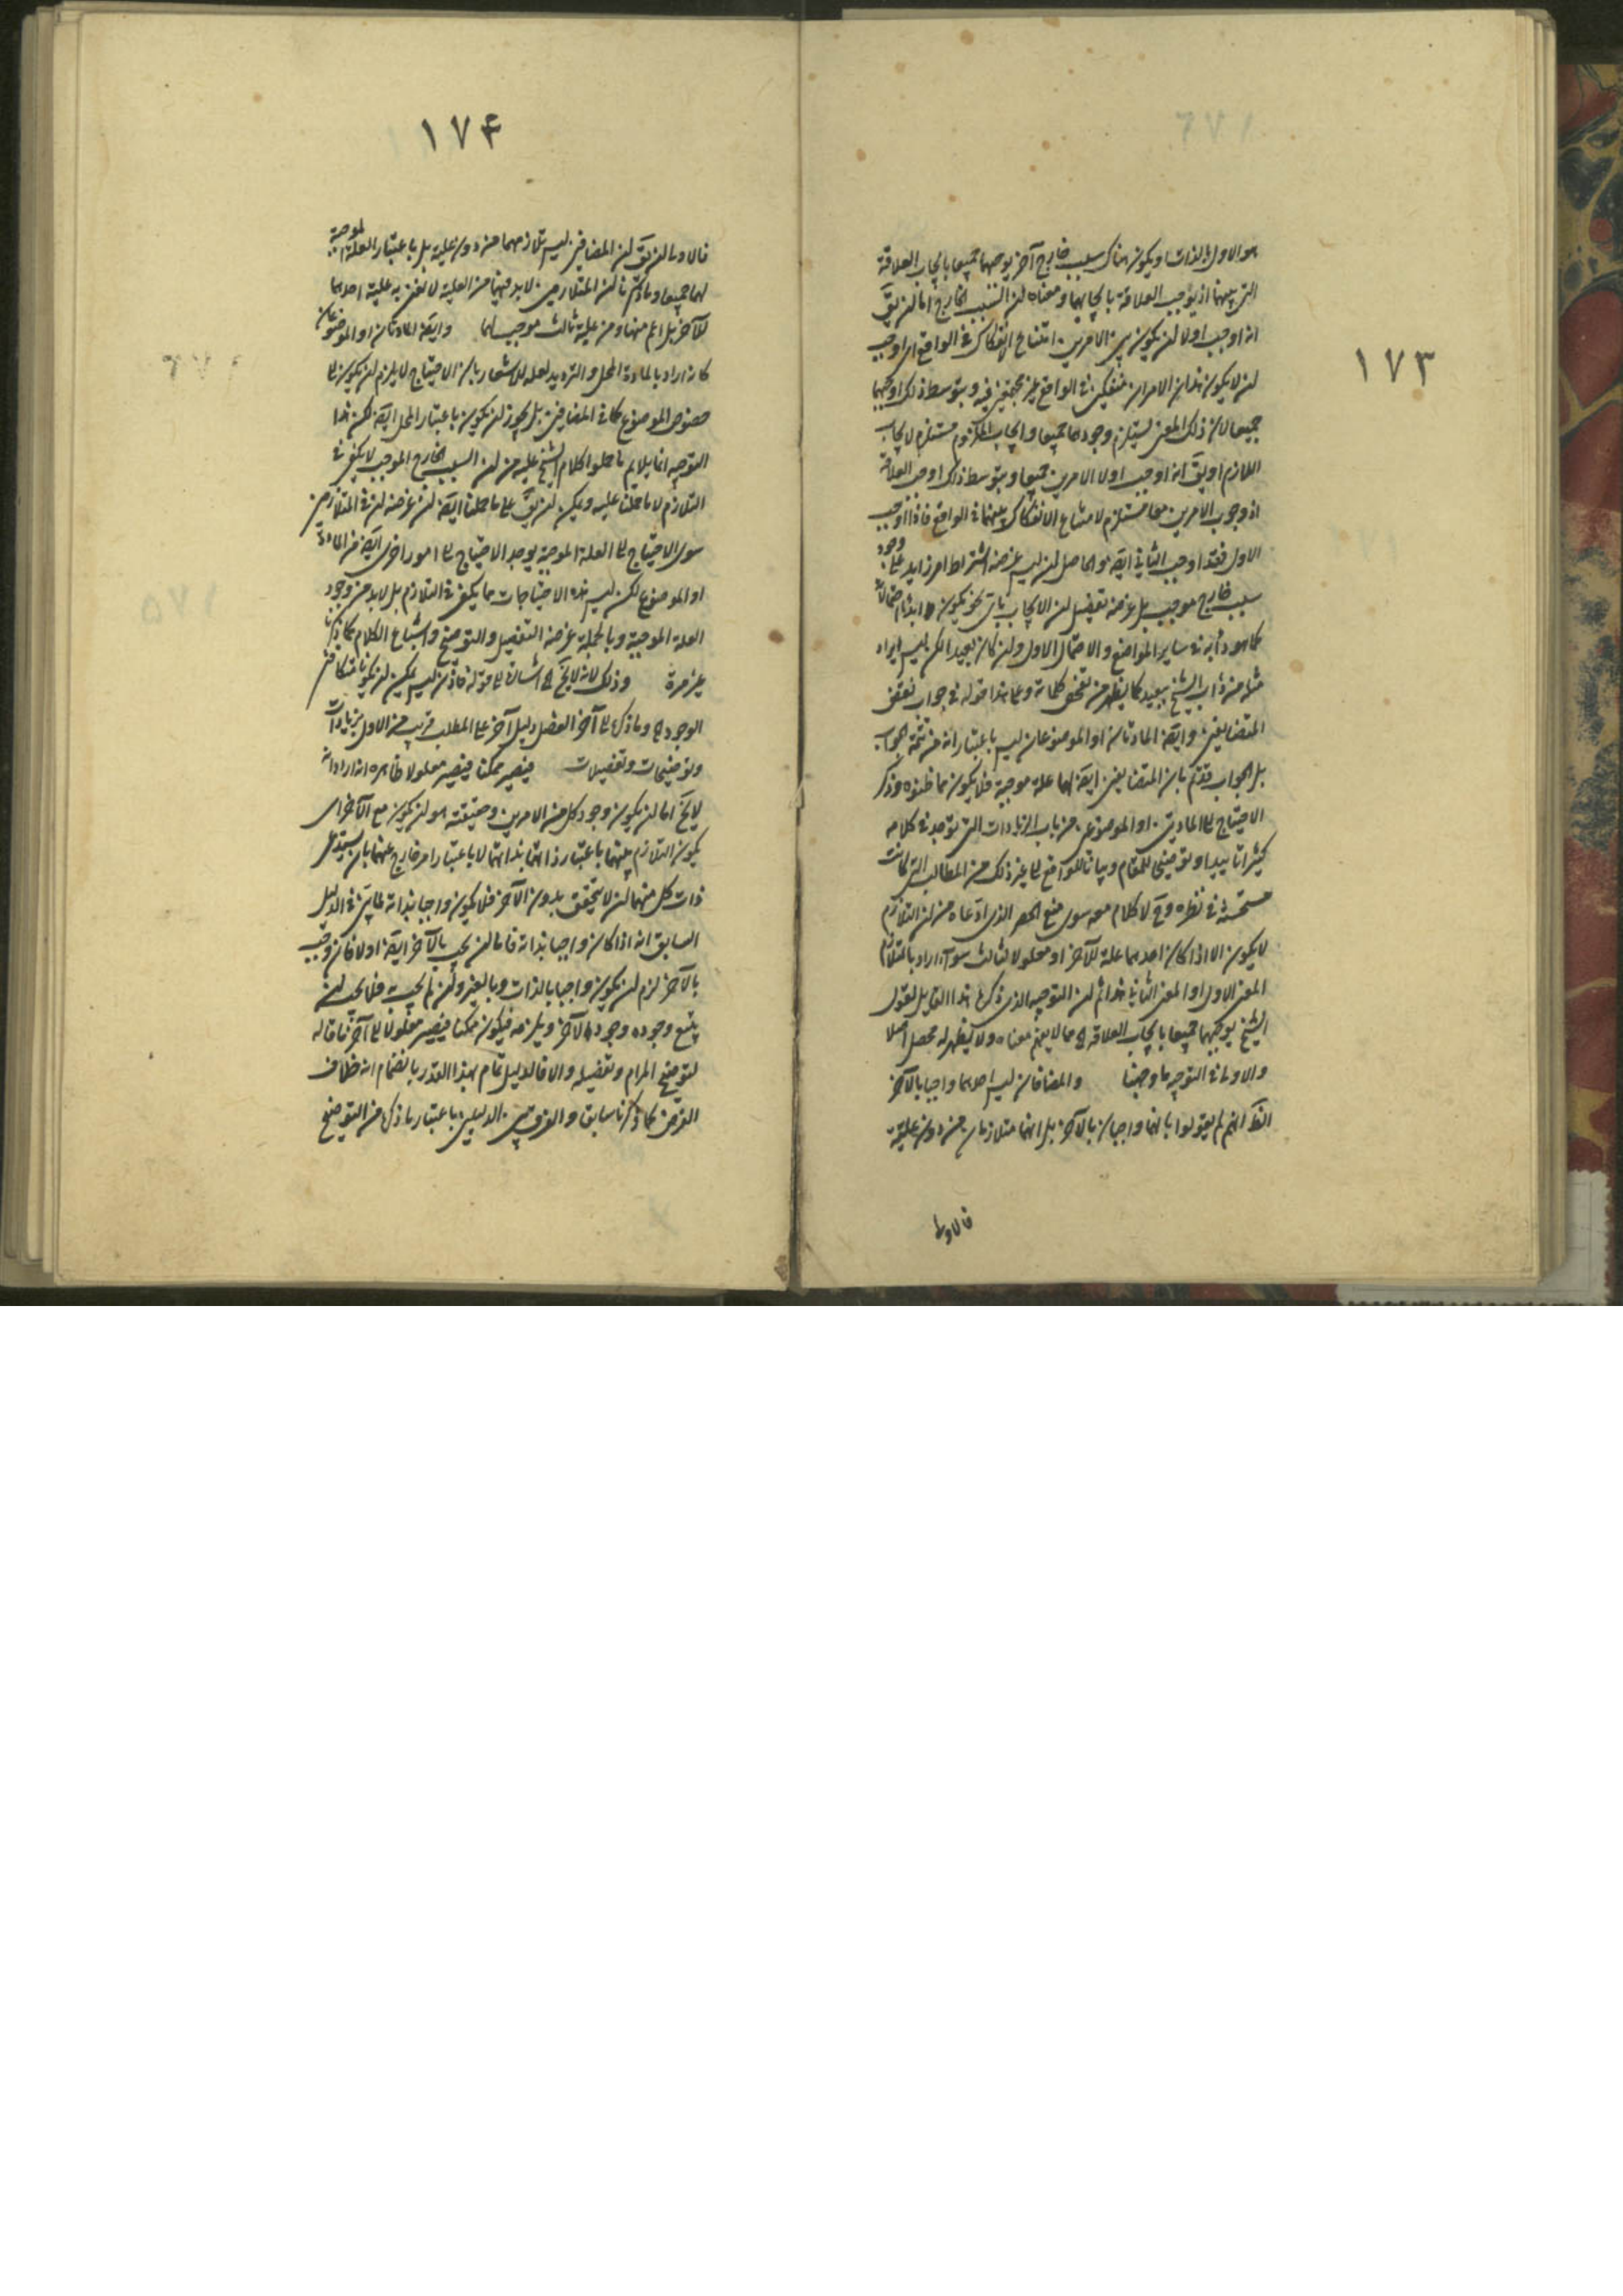 ١٧٣
هو الاول بالذات او يكون هناك سبب خارج آخر يوجبهما جميعا بايجاب العلاقة
التى بينهما اذ يوجب العلاقة بايجابهما ومعناه ان السبب الخارج اما ان يق
انه اوجب اولا ان يكون بين الامرين امتناع الانفكاك فى الواقع اى اوجب
ان لا يكون هذان الامران منفكين فى الواقع غير مجتمعين فيه وبتوسط ذلك اوجبهما
جميعا لان ذلك المعنى يستلزم وجودهما جميعا وايجاب الملزوم مستلزم لايجاب
اللازم او يق انه اوجب اولا الامرين جميعا وبتوسط ذلك اوجب العلاقة
اذ وجوب الامرين معا مستلزم لامتناع الانفكاك بينهما فى الواقع فاذا اوجب
الاول فقد اوجب الثانى ايضا والحاصل ان ليس غرضه اشتراط امر زايد على وجود
سبب خارج موجب بل غرضه تفصيل ان الايجاب باى نحو يكون وابداء احتمالاته
كما هو دأبه فى ساير المواضع والاحتمال الاول وان كان بعيدا لكن ليس ايراد
مثله من داب الشيخ ببعيد كما يظهر من تفحص كلماته وعلى هذا قوله فى جواب نقض
المتضايفين وايضا المادتان او الموضوعان ليس باعتبار انه من تتمة الجواب
بل الجواب قد تم بان المتضايفين ايضا لهما علة موجبة فلا يكون مما ظنوه وذكر
الاحتياج الى المادتين او الموضوعين من باب الزيادات التى توجد فى كلامه
كثيرا تاييدا وتوضيحا للمقام وبيانا للواقع الى غير ذلك من المطالب التى كانت
مستحسنة فى نظره وح لا كلام معه سوى منع الحصر الذى ادعاه من ان التلازم
لا يكون الا اذا كان احدهما علة للآخر او معلولا لثالث سواء اراد بالتلازم
المعنى الاول او المعنى الثانى هذا ثم ان التوجيه الذى ذكره هذا القايل لقول
الشيخ يوجبهما جميعا بايجاب العلاقة اه مما لا يفهم معناه ولا يظهر له محصل اصلا
والاولى فى التوجيه ما وجهنا والمضافان ليس احدهما واجبا بالآخر
الظ انهم لم يقولوا بانهما واجبان بالآخر بل انهما متلازمان من دون علية
فالاولى
١٧٤
فالاولى ان يق ان المضافين ليس تلازمهما من دون علية بل باعتبار العلة الموجبة
لهما جميعا وما ذكرتم ان المتلازمين لا بد فيهما من العلية لا نعنى به علية احدهما
للآخر بل اعم منها ومن علية ثالث موجب لهما وايضا المادتان او الموضوعان
كانه اراد بالمادة المحل والترديد لعله للاشعار بان الاحتياج لا يلزم ان يكون الى
خصوص الموضوع كما فى المضافين بل يجوز ان يكون باعتبار المحل ايضا لكن هذا
التوجيه انما يلايم ما حملوا كلام الشيخ عليه من ان السبب الخارج الموجب لا يكفى فى
التلازم لا ما حملنا عليه ويمكن ان يق على ما حملنا ايضا ان غرضه ان فى المتلازمين
سوى الاحتياج الى العلة الموجبة يوجد الاحتياج الى امور اخرى ايضا من المادة
او الموضوع لكن ليس هذه الاحتياجات مما يكفى فى التلازم بل لا بد من وجود
العلة الموجبة وبالجملة غرضه التفصيل والتوضيح واشباع الكلام كما ذكرنا
غير مرة وذلك لانه لا يخ اه اشارة الى قوله فاذن ليس يمكن ان يكونا متكافئى
الوجود اه وما ذكره الى آخر الفصل دليل آخر على المطلب قريب من الاول بزيادات
وتوضيحات وتفصيلات فيصير ممكنا فيصير معلولا ظاهره انه اراد انه
لا يخ اما ان يكون وجود كل من الامرين وحقيقته هو ان يكون مع الآخر اى
يكون التلازم بينهما باعتبار ذاتهما بذاتهما لا باعتبار امر خارج عنهما بان يستدعى
ذات كل منهما ان لا يتحقق بدون الآخر فلا يكون واجبا بذاته لما بين فى الدليل
السابق انه اذا كان واجبا بذاته فاما ان يجب بالآخر ايضا او لا فان وجب
بالآخر لزم ان يكون واجبا بالذات وبالغير وان لم يجب به فلا يجب ان
يتبع وجوده وجود الآخر ويلزمه فيكون ممكنا فيصير معلولا الى آخر ما قاله
لتوضيح المرام وتفصيله والا فالدليل تمام بهذا القدر بانضمام انه خلاف
الفرض كما ذكرنا سابقا والفرق بين الدليلين باعتبار ما ذكره من التوضيح